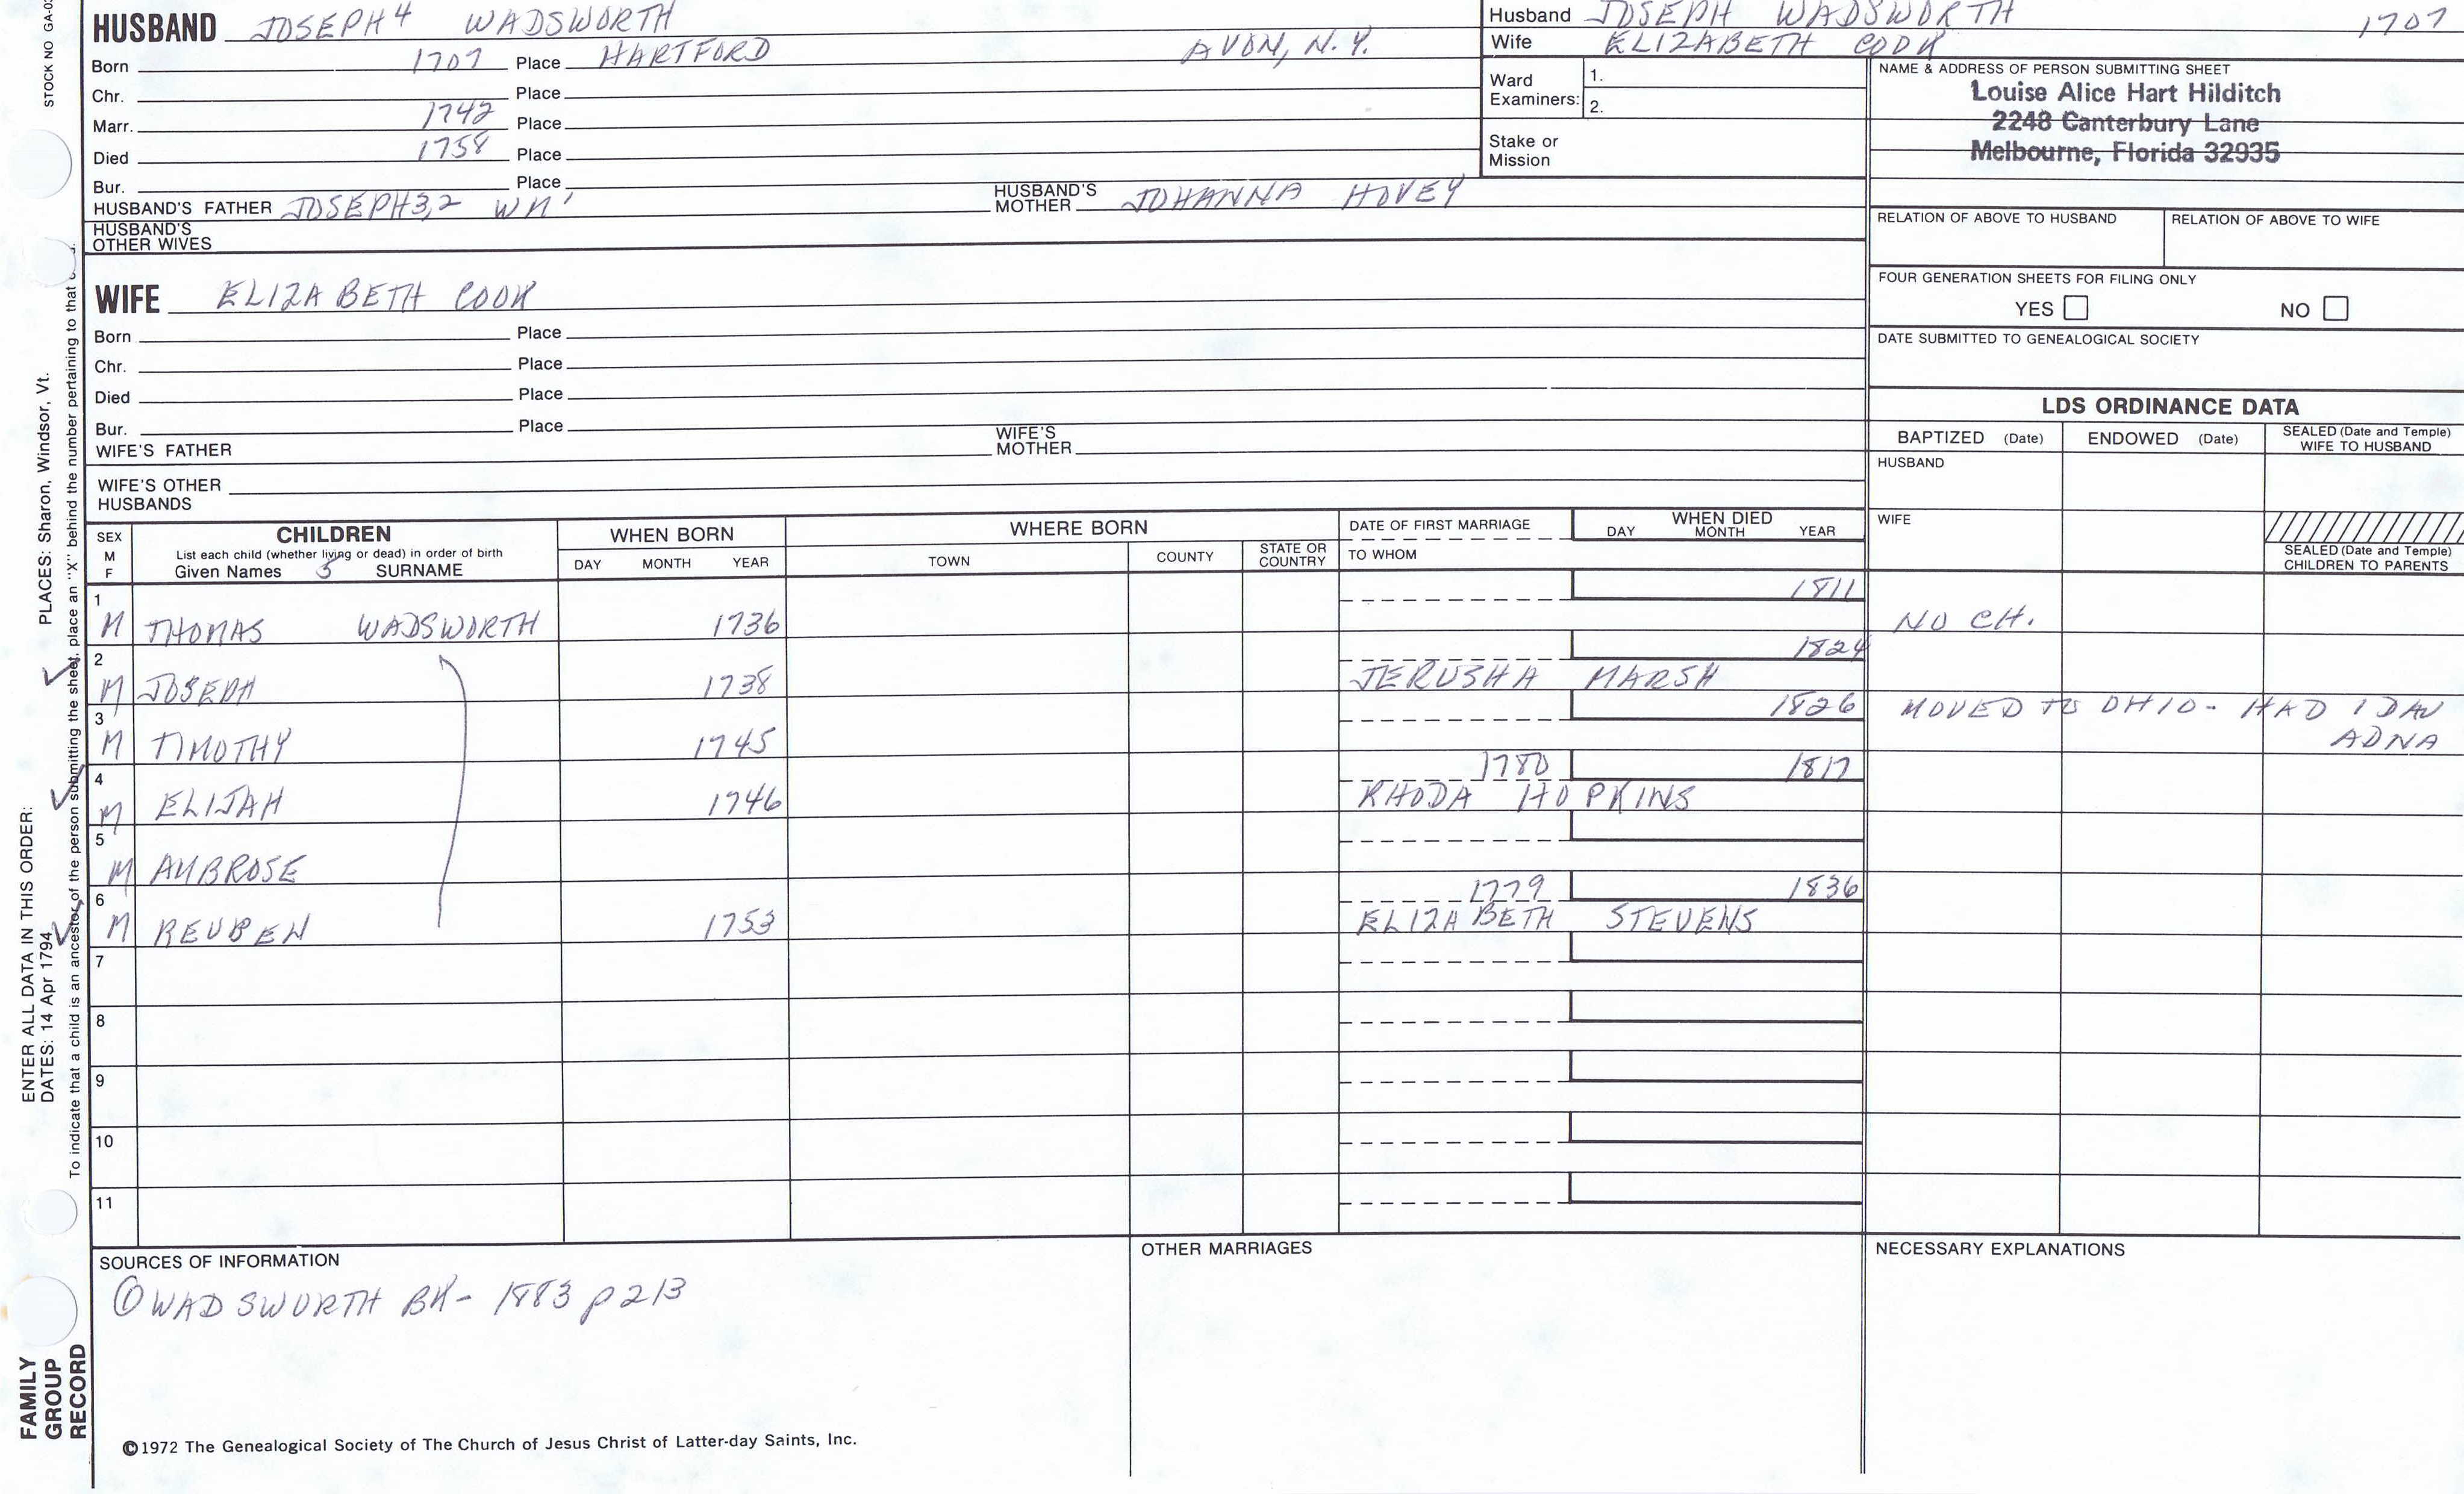 STOCK NO GA-0
HUSBAND JOSEPH4 WADSWORTH
Born 1707 Place HARTFORD AVON, N.Y.
Chr. Place
Marr. 1742 Place
Died 1758 Place
Bur. Place
HUSBAND'S FATHER JOSEPH3,2 WM' HUSBAND'S MOTHER JOHANNA HOVEY
HUSBAND'S OTHER WIVES
Husband JOSEPH WADSWORTH 1707
Wife ELIZABETH COOK
Ward Examiners: 1.
2.
Stake or Mission
NAME & ADDRESS OF PERSON SUBMITTING SHEET
Louise Alice Hart Hilditch
2248 Canterbury Lane
Melbourne, Florida 32935
RELATION OF ABOVE TO HUSBAND RELATION OF ABOVE TO WIFE
FOUR GENERATION SHEETS FOR FILING ONLY
YES NO
DATE SUBMITTED TO GENEALOGICAL SOCIETY
WIFE ELIZABETH COOK
Born Place
Chr. Place
Died Place
Bur. Place
WIFE'S FATHER WIFE'S MOTHER
WIFE'S OTHER HUSBANDS
LDS ORDINANCE DATA
BAPTIZED (Date) ENDOWED (Date) SEALED (Date and Temple) WIFE TO HUSBAND
HUSBAND
WIFE
SEALED (Date and Temple) CHILDREN TO PARENTS
SEX M F
CHILDREN
List each child (whether living or dead) in order of birth
Given Names 5 SURNAME
WHEN BORN
DAY MONTH YEAR
WHERE BORN
TOWN COUNTY STATE OR COUNTRY
DATE OF FIRST MARRIAGE
TO WHOM
WHEN DIED
DAY MONTH YEAR
1 1811
M THOMAS WADSWORTH 1736 NO CH.
2 1824
M JOSEPH 1738 JERUSHA MARSH
3 1826 MOVED TO OHIO - HAD 1 DAU
M TIMOTHY 1745 ADNA
4 1780 1817
M ELIJAH 1746 RHODA HOPKINS
5
M AMBROSE
6 1779 1836
M REUBEN 1753 ELIZABETH STEVENS
7
8
9
10
11
SOURCES OF INFORMATION
① WADSWORTH BK - 1883 p 213
OTHER MARRIAGES
NECESSARY EXPLANATIONS
©1972 The Genealogical Society of The Church of Jesus Christ of Latter-day Saints, Inc.
FAMILY GROUP RECORD
ENTER ALL DATA IN THIS ORDER:
DATES: 14 Apr 1794 PLACES: Sharon, Windsor, Vt.
To indicate that a child is an ancestor of the person submitting the sheet, place an "X" behind the number pertaining to that